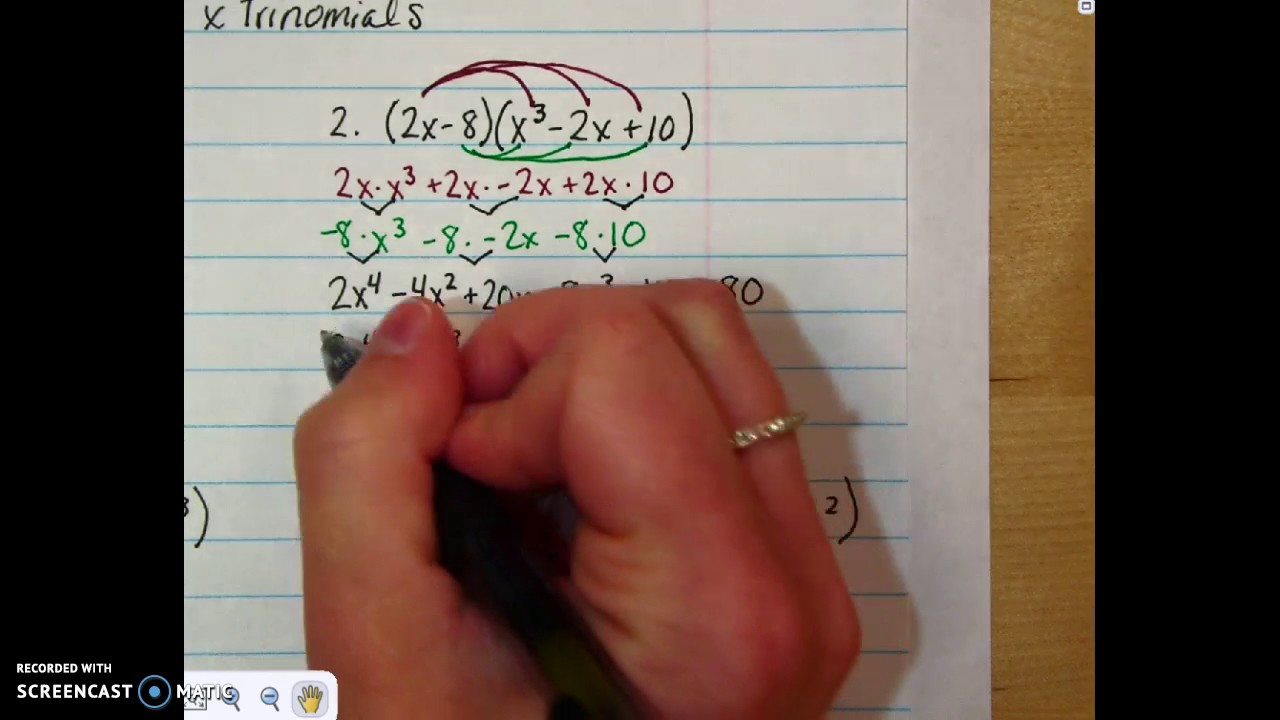 x Trinomials
2. (2x-8)(x³-2x+10)
2x·x³ +2x·-2x +2x·10
-8·x³ -8·-2x -8·10
2x⁴ -4x² +20x 80
2)
RECORDED WITH
SCREENCAST MATIC